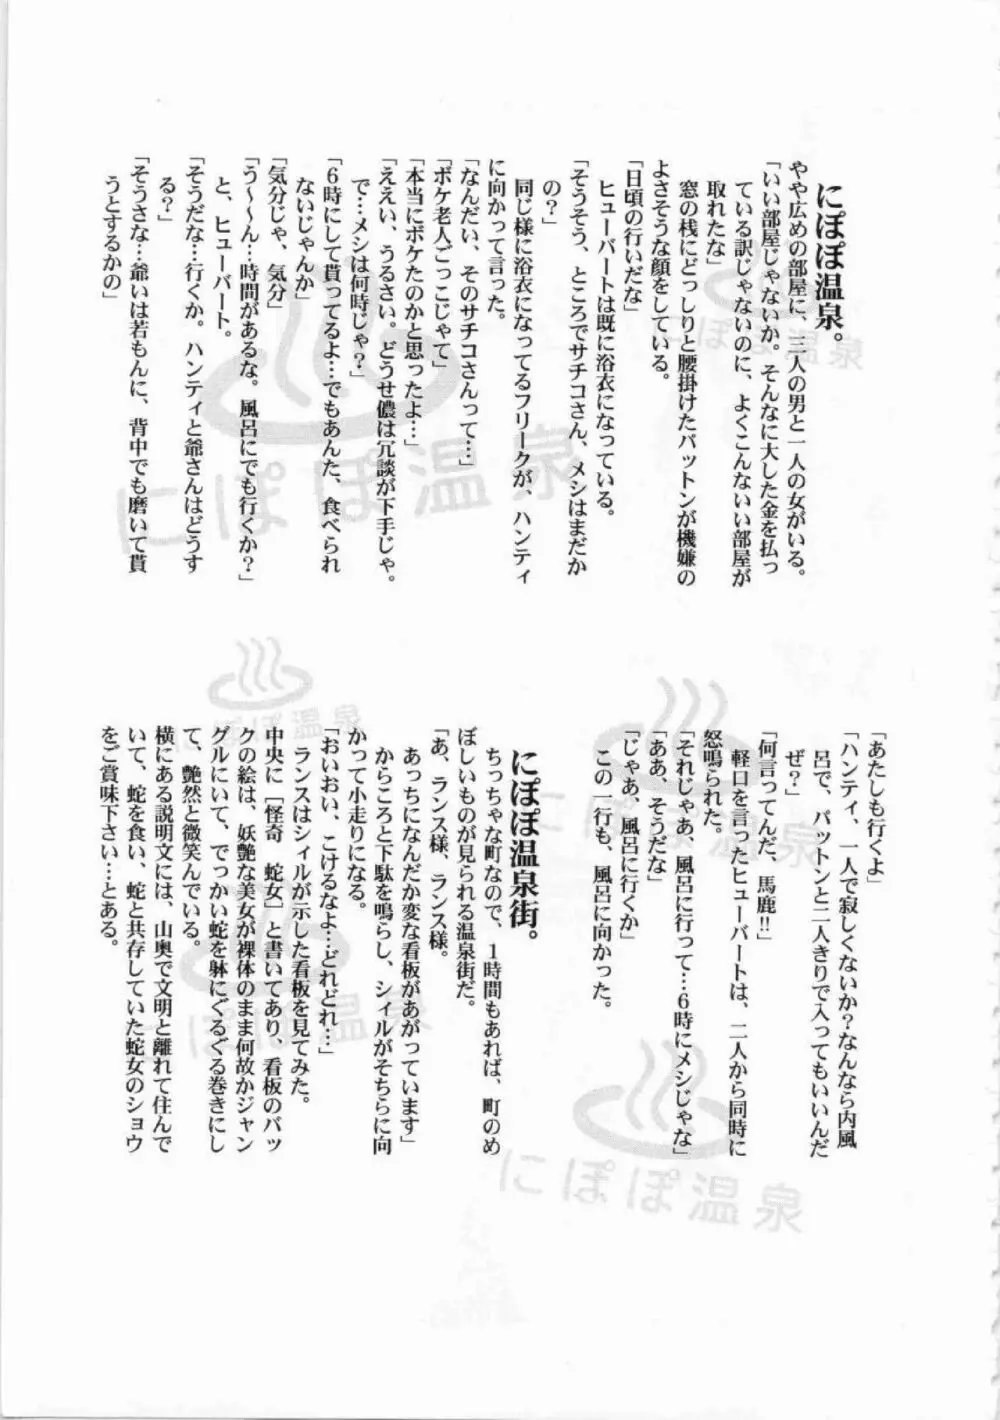 にぽぽ温泉。
やや広めの部屋に、三人の男と一人の女がいる。
「いい部屋じゃないか。そんなに大した金を払っ
ている訳じゃないのに、よくこんないい部屋が
取れたな」
窓の桟にどっしりと腰掛けたパットンが機嫌の
よさそうな顔をしている。
「日頃の行いだな」
ヒューバートは既に浴衣になっている。
「そうそう、ところでサチコさん、メシはまだか
の？」
同じ様に浴衣になってるフリークが、ハンティ
に向かって言った。
「なんだい、そのサチコさんって…」
「ボケ老人ごっこじゃて」
「本当にボケたのかと思ったよ…」
「ええい、うるさい。どうせ儂は冗談が下手じゃ。
で…メシは何時じゃ？」
「６時にして貰ってるよ…でもあんた、食べられ
ないじゃんか」
「気分じゃ、気分」
「う〜〜ん…時間があるな。風呂にでも行くか？」
と、ヒューバート。
「そうだな…行くか。ハンティと爺さんはどうす
る？」
「そうさな…爺いは若もんに、背中でも磨いて貰
うとするかの」
「あたしも行くよ」
「ハンティ、一人で寂しくないか？なんなら内風
呂で、パットンと二人きりで入ってもいいんだ
ぜ？」
「何言ってんだ、馬鹿!!」
軽口を言ったヒューバートは、二人から同時に
怒鳴られた。
「それじゃあ、風呂に行って…６時にメシじゃな」
「ああ、そうだな」
「じゃあ、風呂に行くか」
この一行も、風呂に向かった。
にぽぽ温泉街。
ちっちゃな町なので、１時間もあれば、町のめ
ぼしいものが見られる温泉街だ。
「あ、ランス様、ランス様。
あっちになんだか変な看板があがっています」
からころと下駄を鳴らし、シィルがそちらに向
かって小走りになる。
「おいおい、こけるなよ…どれどれ…」
ランスはシィルが示した看板を見てみた。
中央に［怪奇　蛇女］と書いてあり、看板のバッ
クの絵は、妖艶な美女が裸体のまま何故かジャン
グルにいて、でっかい蛇を躰にぐるぐる巻きにし
て、艶然と微笑んでいる。
横にある説明文には、山奥で文明と離れて住んで
いて、蛇を食い、蛇と共存していた蛇女のショウ
をご賞味下さい…とある。
にぽぽ温泉
にぽぽ温泉
にぽぽ温泉
にぽぽ温泉
にぽぽ温泉
にぽぽ温泉